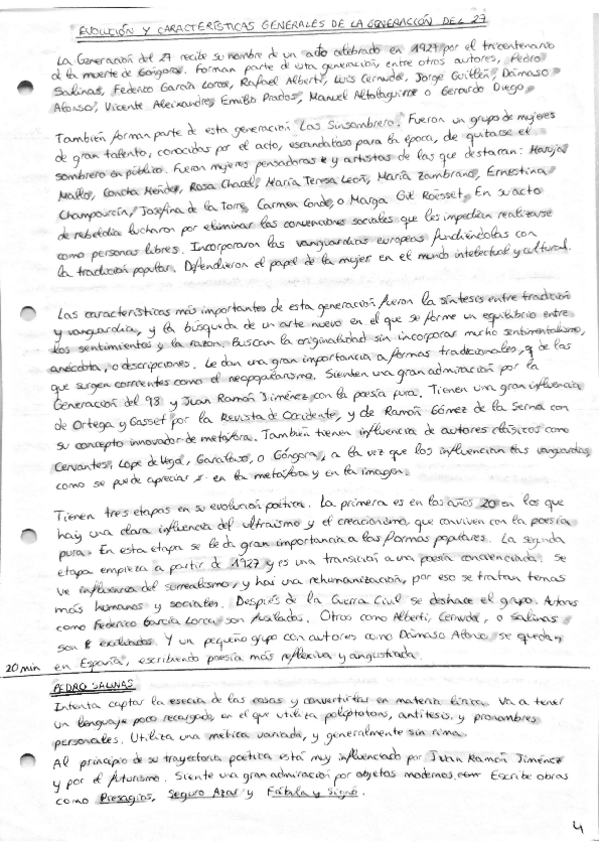 EVOLUCIÓN Y CARACTERÍSTICAS GENERALES DE LA GENERACIÓN DEL 27
La Generación del 27 recibe su nombre de un acto celebrado en 1927 por el tricentenario
de la muerte de Góngora. Forman parte de esta generación entre otros autores, Pedro
Salinas, Federico García Lorca, Rafael Alberti, Luis Cernuda, Jorge Guillén, Dámaso
Alonso, Vicente Aleixandre, Emilio Prados, Manuel Altolaguirre o Gerardo Diego.
También forman parte de esta generación Las Sinsombrero. Fueron un grupo de mujeres
de gran talento, conocidas por el acto, escandaloso para la época, de quitarse el
sombrero en público. Fueron mujeres pensadoras y artistas de las que destacan: Maruja
Mallo, Concha Méndez, Rosa Chacel, María Teresa León, María Zambrano, Ernestina
Champourcín, Josefina de la Torre, Carmen Conde, o Marga Gil Roësset. En su acto
de rebeldía lucharon por eliminar las convenciones sociales que les impedían realizarse
como personas libres. Incorporaron las vanguardias europeas fundiéndolas con
la tradición popular. Defendieron el papel de la mujer en el mundo intelectual y cultural.
Las características más importantes de esta generación fueron la síntesis entre tradición
y vanguardia, y la búsqueda de un arte nuevo en el que se forme un equilibrio entre
los sentimientos y la razón. Buscan la originalidad sin incorporar mucho sentimentalismo,
anécdota, o descripciones. Le dan una gran importancia a formas tradicionales, y de las
que surgen corrientes como el neopopularismo. Sienten una gran admiración por la
Generación del 98 y Juan Ramón Jiménez con la poesía pura. Tienen una gran influencia
de Ortega y Gasset por la Revista de Occidente, y de Ramón Gómez de la Serna con
su concepto innovador de metáfora. También tienen influencia de autores clásicos como
Cervantes, Lope de Vega, Garcilaso, o Góngora, a la vez que los influencian las vanguardias,
como se puede apreciar en la metáfora y en la imagen.
Tienen tres etapas en su evolución poética. La primera es en los años 20 en los que
hay una clara influencia del ultraísmo y el creacionismo, que conviven con la poesía
pura. En esta etapa se le da gran importancia a las formas populares. La segunda
etapa empieza a partir de 1927 y es una transición a una poesía concienciada. Se
ve influenza del surrealismo, y hai una rehumanización, por eso se tratan temas
más humanos y sociales. Después de la Guerra Civil se deshace el grupo. Autores
como Federico García Lorca son fusilados. Otros como Alberti, Cernuda, o Salinas
son exiliados. Y un pequeño grupo con autores como Dámaso Alonso se queda
20 min en España, escribiendo poesía más reflexiva y angustiada.
PEDRO SALINAS
Intenta captar la esecia de las cosas y convertirlas en materia lírica. Va a tener
un lenguaje poco recargado, en el que utiliza políptotons, antítesis, y pronombres
personales. Utiliza una métrica variada, y generalmente sin rima.
Al principio de su trayectoria poética está muy influenciado por Juan Ramón Jiménez
y por el futurismo. Siente una gran admiración por objetos modernos. Escribe obras
como Presagios, Seguro Azar y Fábula y Signo.
4